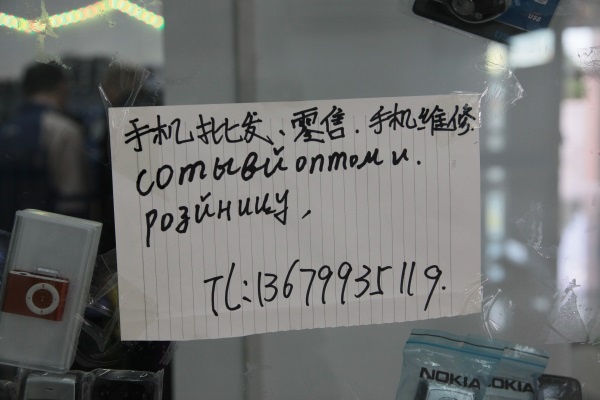 手机批发、零售.手机维修.
сотывй оптом и.
розйницу,
TL:13679935119.
NOKIA
NOKIA